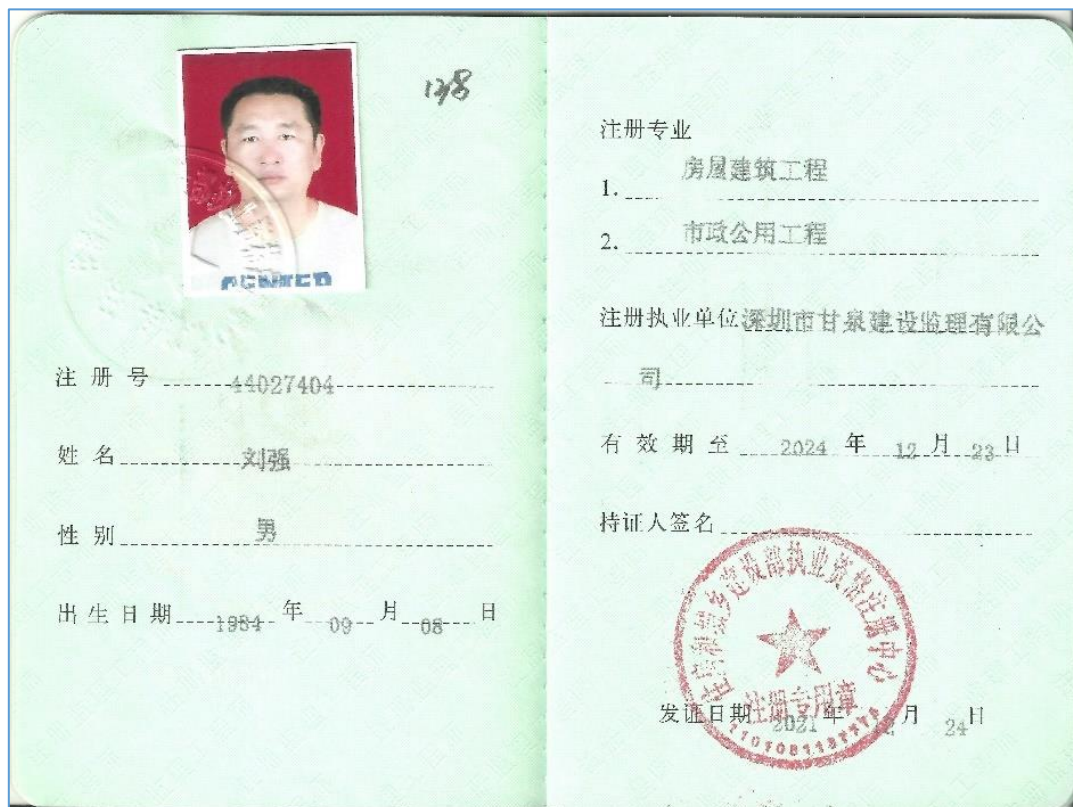 138
注册号 44027404
姓名 刘强
性别 男
出生日期 1984 年 09 月 08 日
注册专业
1. 房屋建筑工程
2. 市政公用工程
注册执业单位 深圳市甘泉建设监理有限公
司
有效期至 2024 年 12 月 23 日
持证人签名
住房和城乡建设部执业资格注册中心
注册专用章
发证日期 2021 年 12 月 24 日